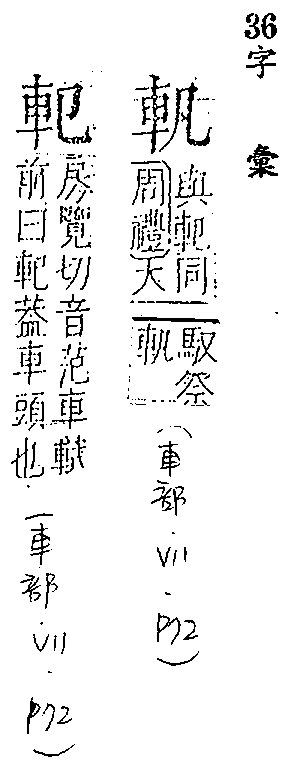 36字 彙
軓
與𨊠同
周禮天
馭祭
軓
（車部·VII·P72）
𨊠
房覽切音范車軾
前曰𨊠葢車頭也
（車部·VII·P72）